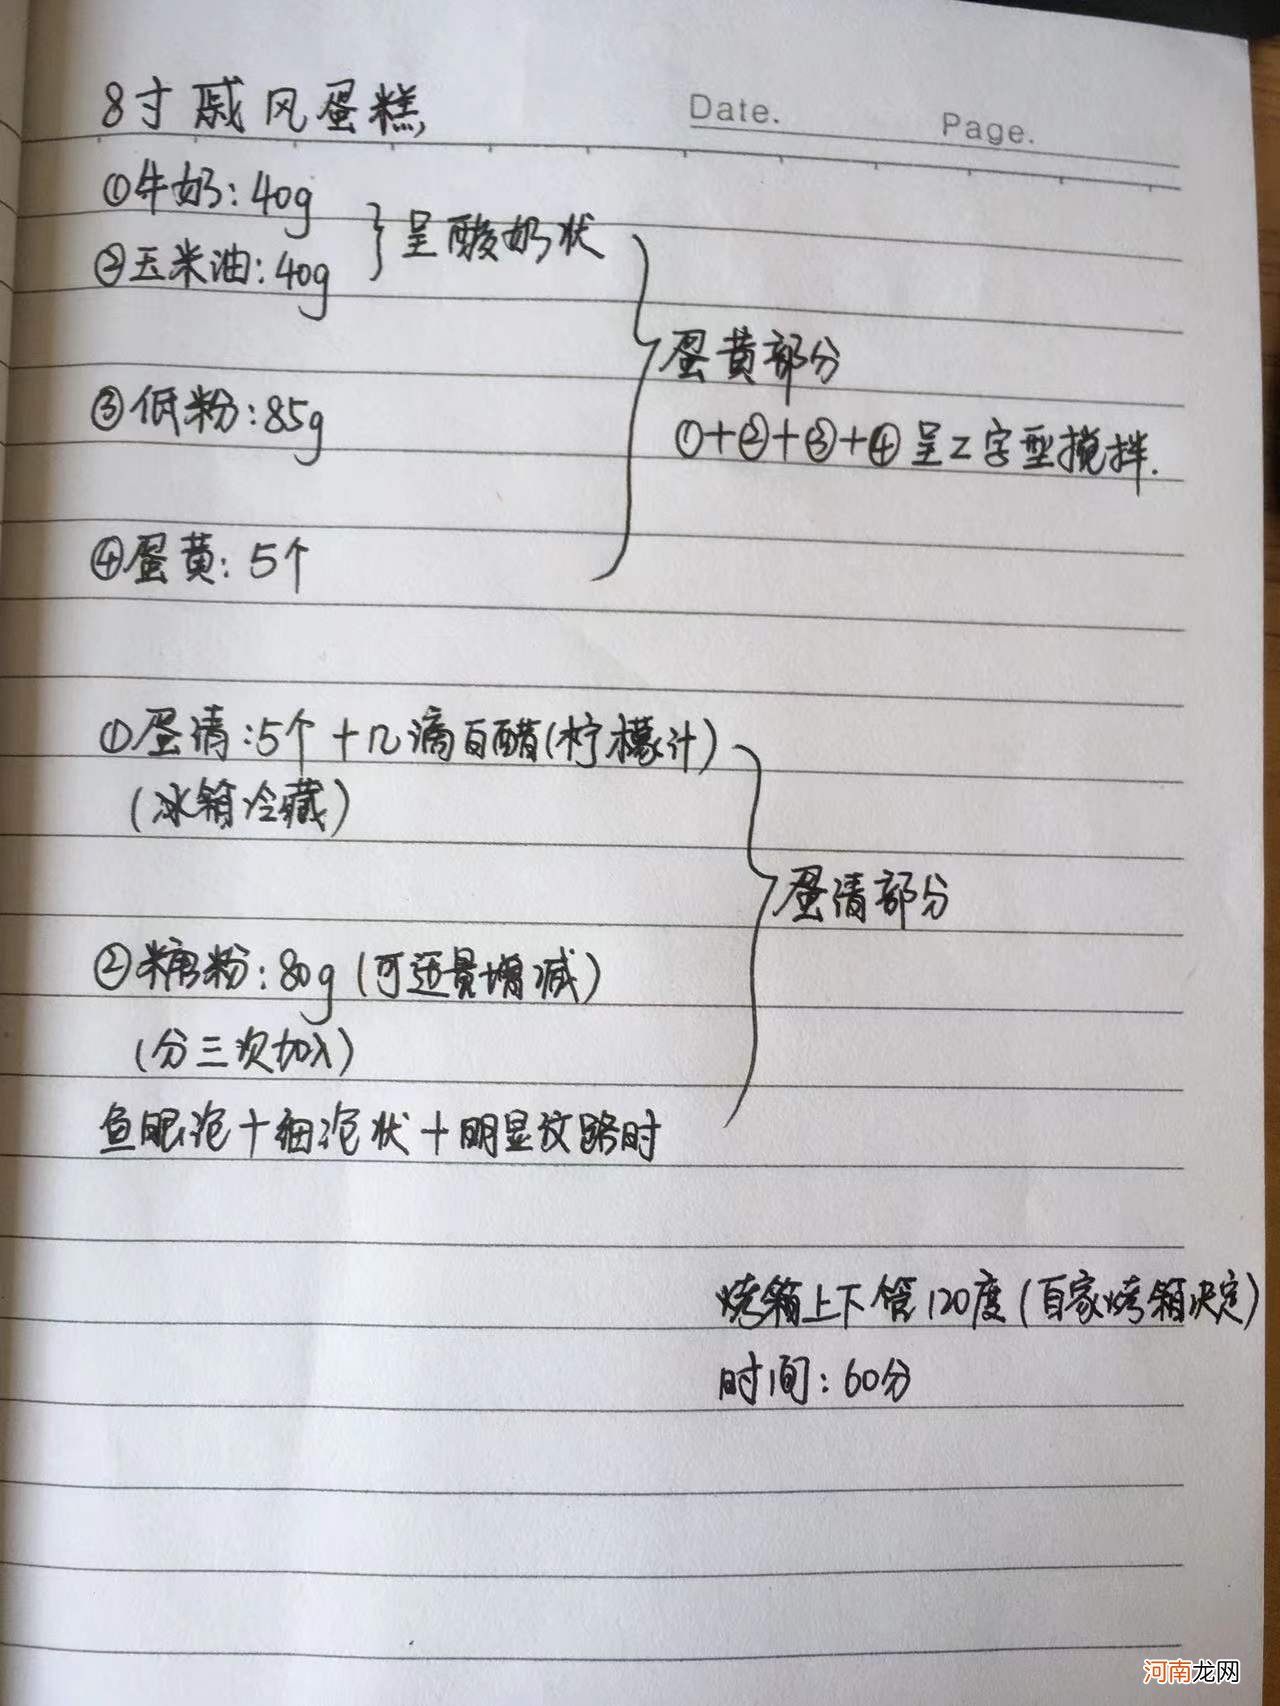 8寸戚风蛋糕
Date.
Page.
①牛奶:40g
②玉米油:40g
呈酸奶状
③低粉:85g
④蛋黄:5个
蛋黄部分
①+②+③+④呈Z字型搅拌.
①蛋清:5个+几滴白醋(柠檬汁)
(冰箱冷藏)
②糖粉:80g(可适量增减)
(分三次加入)
鱼眼泡+细泡状+明显纹路时
蛋清部分
烤箱上下管120度(自家烤箱决定)
时间:60分
河南龙网